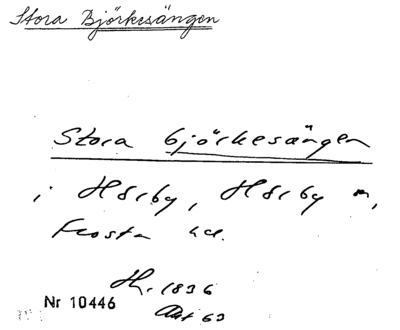 Stora Björkesängen
Stora Björkesängen
i Hörby, Hörby n,
Frosta hd.
Hr. 1836
Nr 10446
Akt 63